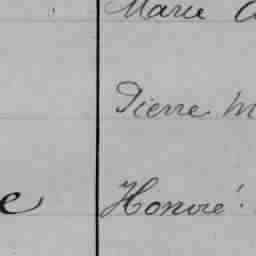 Marie
Pierre M
e Honoré